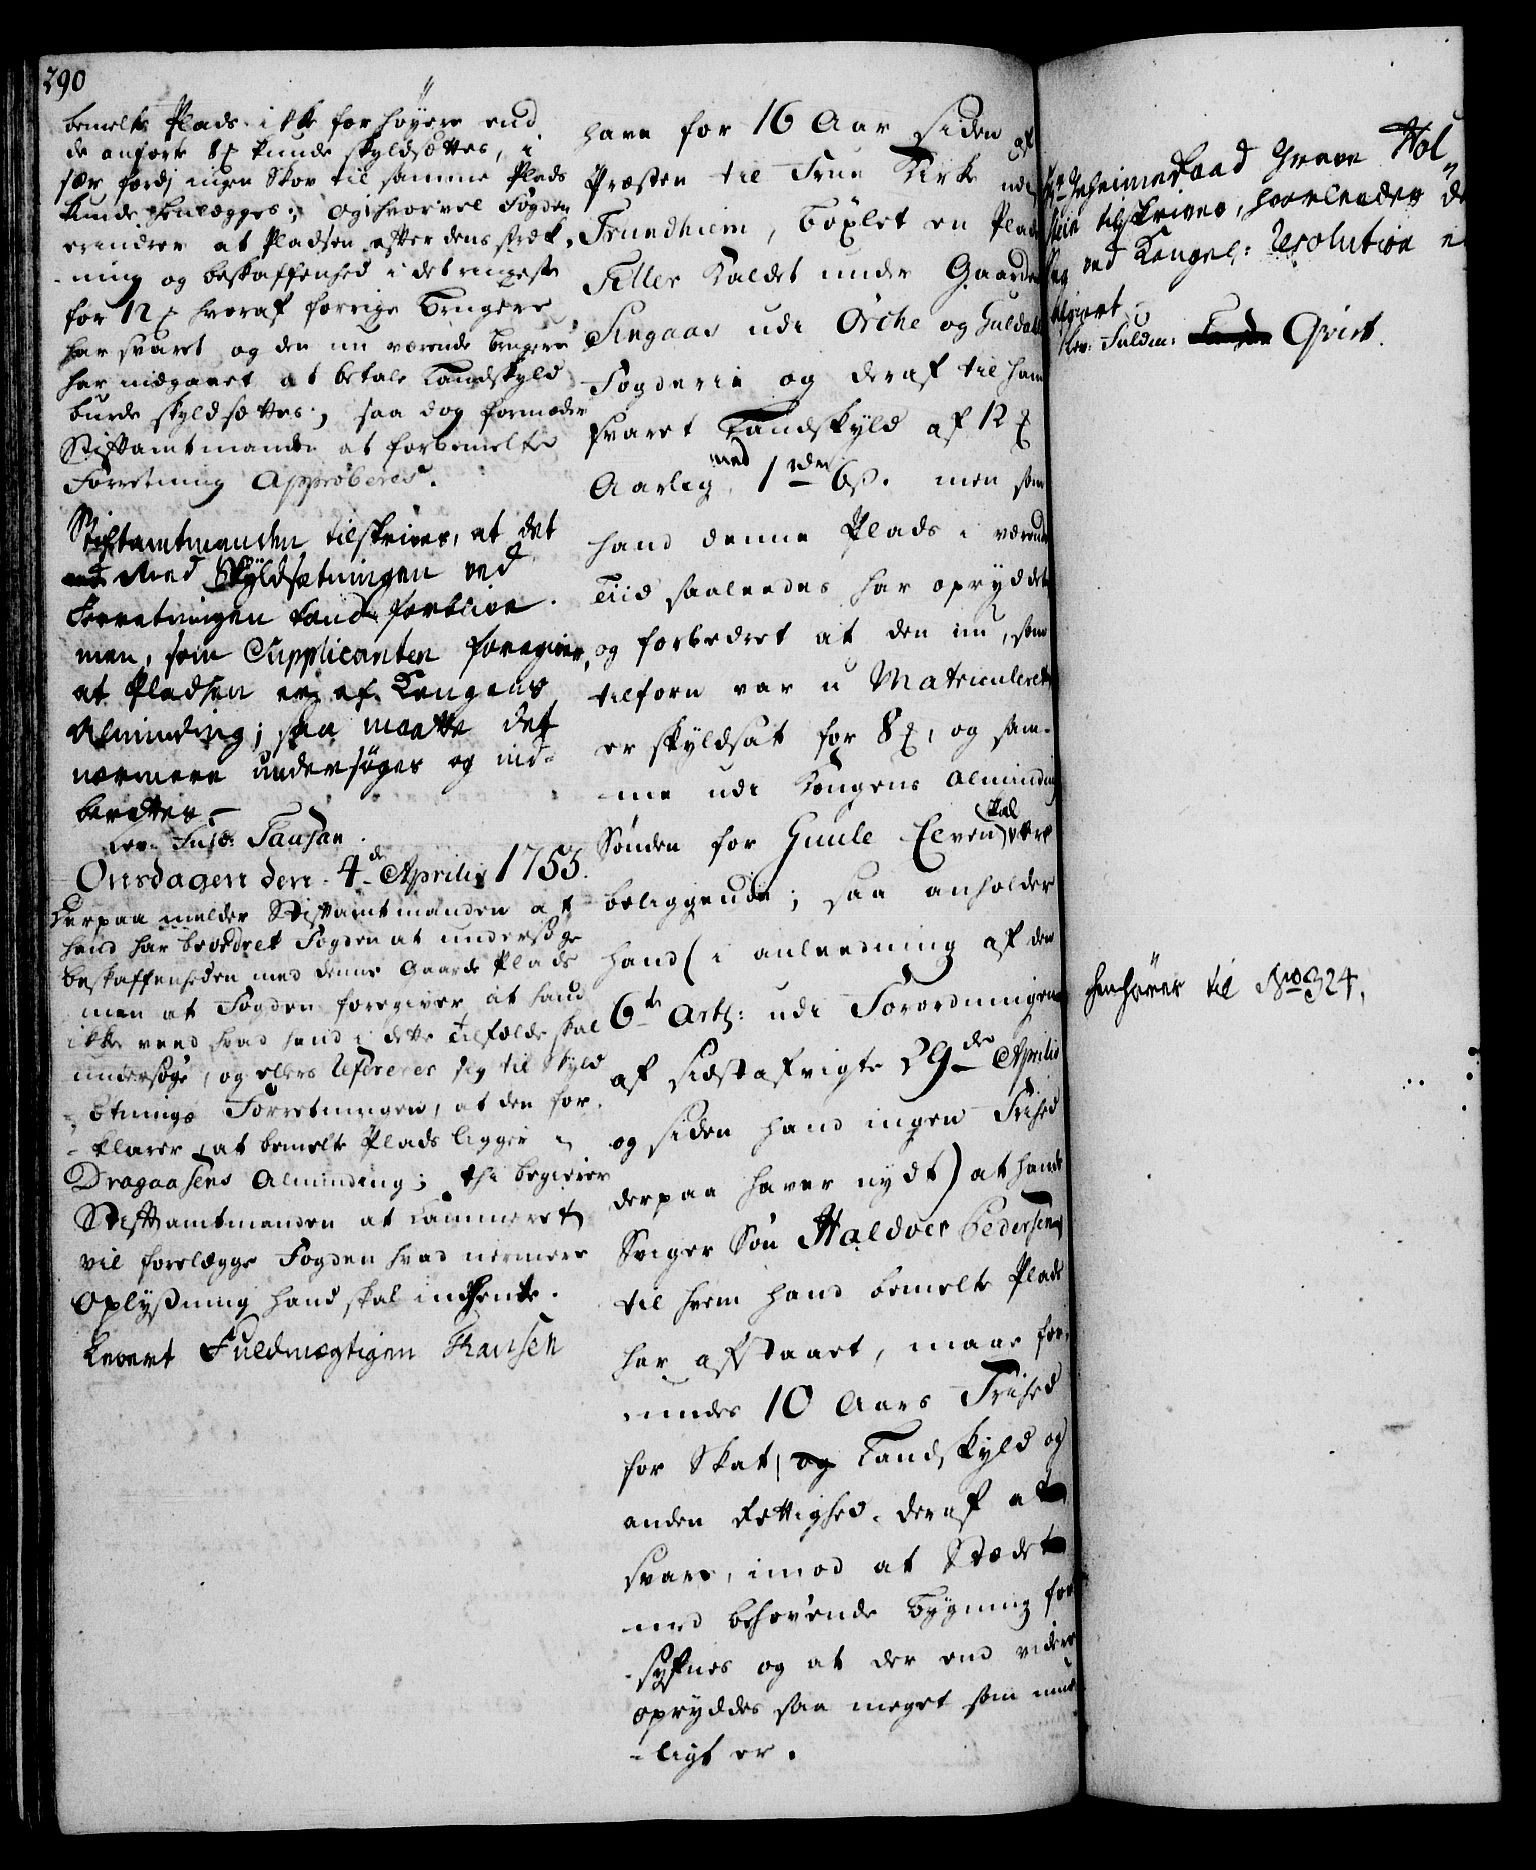 290
bemelte Plads ikke for høyere end
de anførte 8 kunde skyldsættes, i
sær fordj ingen Skov til samme Plads
kunde henlægges; og hvorvel Fogden
erindrer at Pladsen efter dens stræk-
ning og beskaffenhed i det ringeste
for 12 hvoraf forrige Brugere
har svaret og den nu værende bruger
har indgaaet at betale Landskyld
burde skyldsættes; saa dog formeder
Stiftamtmanden at forbemelte
Forretning Approberes.
Stiftamtmanden tilskrives, at det
med Skyldsætningen ved
Forretningen kand forblive
men, som Supplicanten foregiver,
at Pladsen er af Kongens
Alminding; saa maatte det
nærmere undersøges og ind-
berettes.
Lev: Fuldm: Tausan
Onsdagen den 4de Aprilis 1753.
Herpaa melder Stiftamtmanden at
hand har beordret Fogden at undersøge
beskaffenheden med denne Gaarde Plads
men at Fogden foregiver, at hand
ikke veed hvad hand i dette Tilfælde skal
undersøge, og ellers Refererer sig til Skyld
sætnings Forretningen, at den for-
klarer at bemelte Plads ligger i
Dragaasens Alminding; thi begierer
Stiftamtmanden at Cammeret
vil forelægge Fogden hvad nermere
Oplysning hand skal indhente.
Levert Fuldmægtigen Thausen
have for 16 Aar siden af
Præsten til Frue Kirke udi
Trundhiem, bøxlet en Plads
Tiller kaldet under Gaarden
Singaas udi Ørche og Guldals
Fogderie og deraf til ham
svaret Landskyld af 12
Aarlig med 1 rdr 6 ß. men som
hand denne Plads i værende
Tiid saaleedes har opryddet
og forbedret at den nu, som
tilforn var u Matriculeret
er skyldsat for 8, og sam-
me udi Kongens Alminding
Sønden for Guule Elven skal være
beliggende; saa anholder
hand (i anleedning af den
6te Art: udi Forordningen
af sidstafvigte 29de Aprilis
og siden hand ingen Frihed
derpaa haver nydt) at hands
Sviger Søn Haldoer Pedersen
til hvem hand bemelte Plads
har afstaaet, maae for-
undes 10 Aars Frihed
for Skat, og Landskyld og
anden Rettighed deraf at
svare, imod at Stædet
med behøvende Bygning for
synes og at der end videre
opryddes saa meget som mue-
ligt er.
Hr Geheimeraad Greve Hol-
stein tilskrives, hvorleedes denne
Sag ved Kongel: Resolution er
Lev: Fuldm: Qvist.
henhører til No 324.